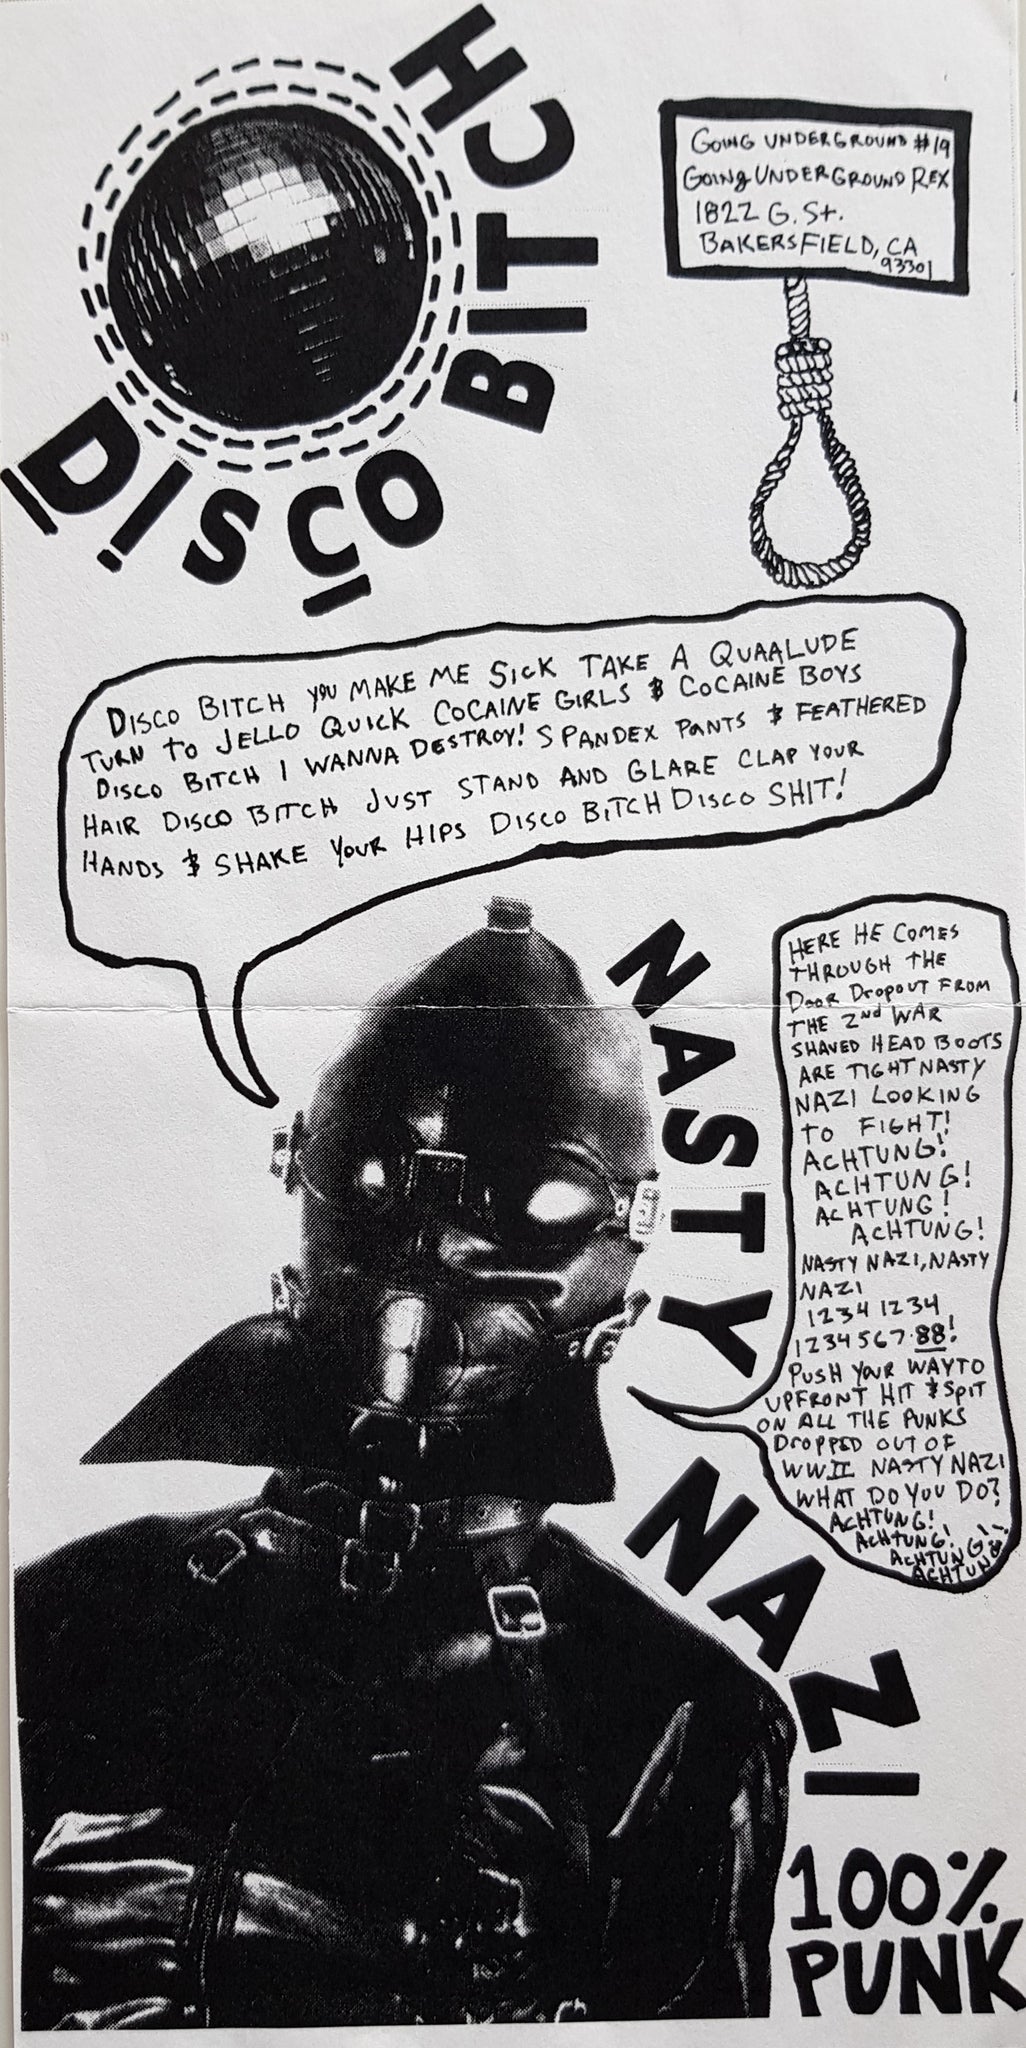 DISCO BITCH
GOING UNDERGROUND #19
GOING UNDERGROUND REX
1822 G. St.
BAKERSFIELD, CA
93301
DISCO BITCH YOU MAKE ME SICK TAKE A QUAALUDE
TURN TO JELLO QUICK COCAINE GIRLS & COCAINE BOYS
DISCO BITCH I WANNA DESTROY! SPANDEX PANTS & FEATHERED
HAIR DISCO BITCH JUST STAND AND GLARE CLAP YOUR
HANDS & SHAKE YOUR HIPS DISCO BITCH DISCO SHIT!
NASTY NAZI
HERE HE COMES
THROUGH THE
DOOR DROPOUT FROM
THE 2nd WAR
SHAVED HEAD BOOTS
ARE TIGHT NASTY
NAZI LOOKING
TO FIGHT!
ACHTUNG!
ACHTUNG!
ACHTUNG!
ACHTUNG!
NASTY NAZI, NASTY
NAZI
1234 1234
1234567.88!
PUSH YOUR WAY TO
UPFRONT HIT & SPIT
ON ALL THE PUNKS
DROPPED OUT OF
WWII NASTY NAZI
WHAT DO YOU DO?
ACHTUNG!
ACHTUNG!
ACHTUNG!
ACHTUNG
100%
PUNK